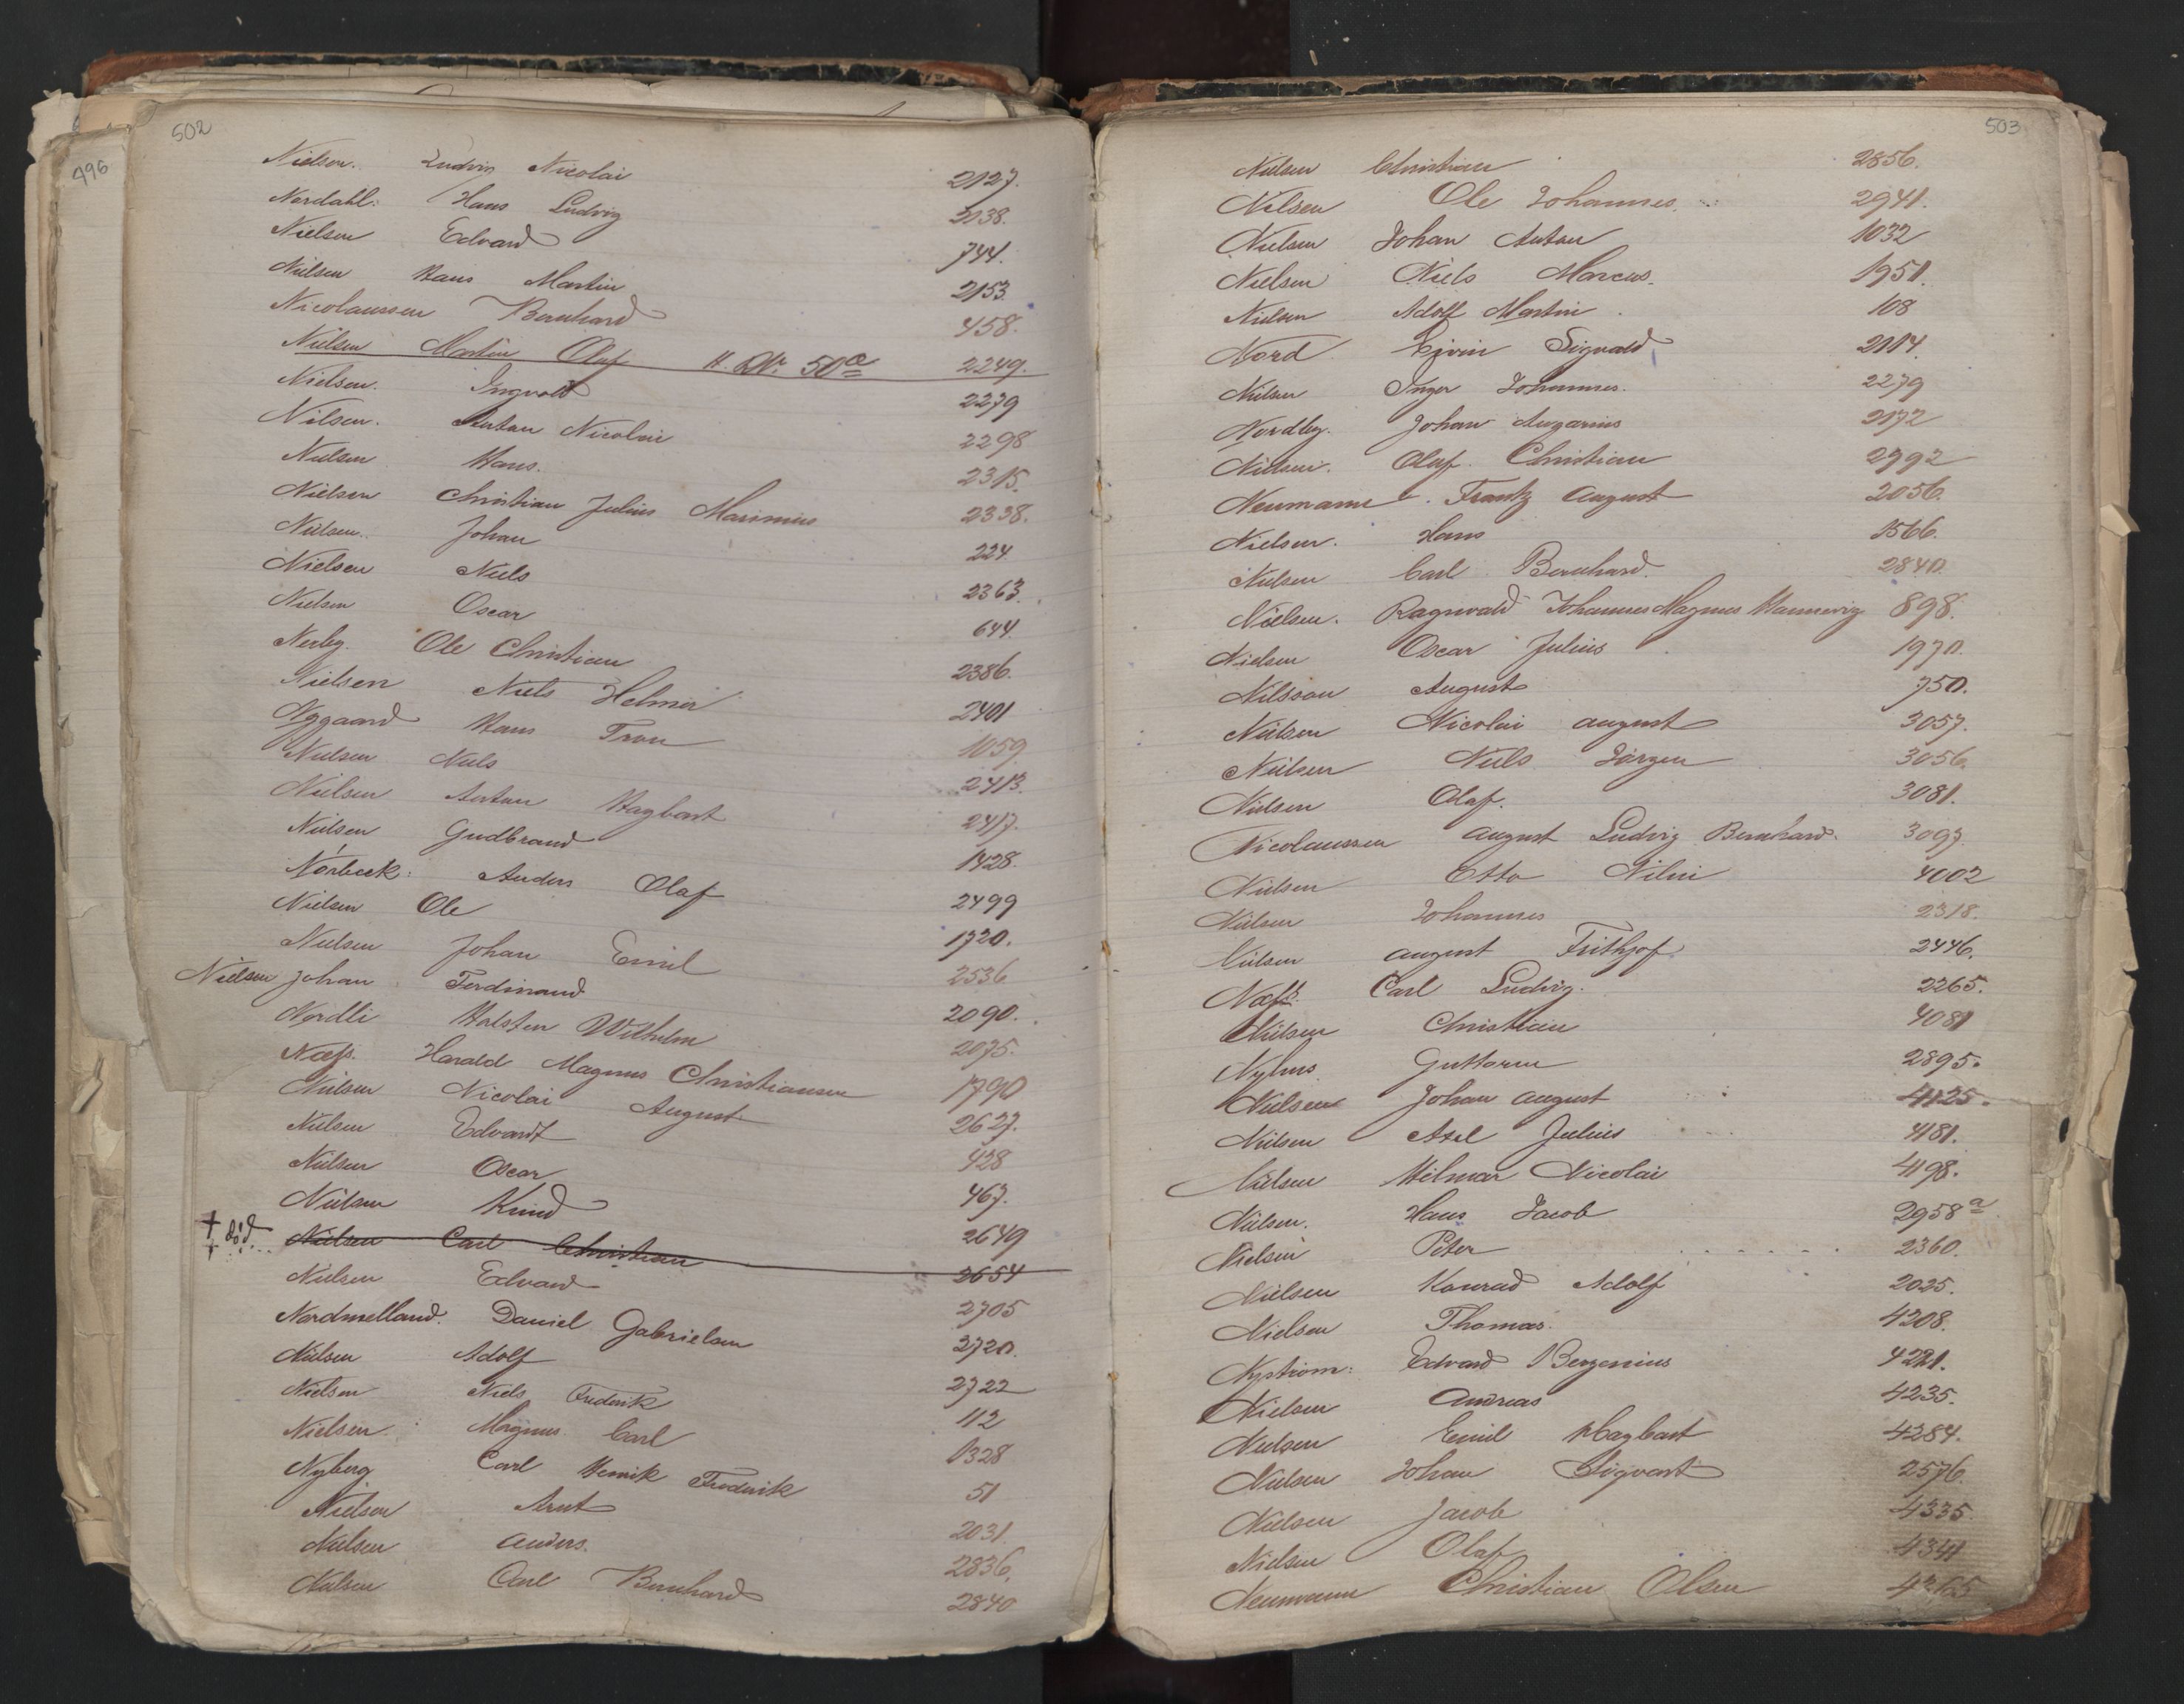 496
502
Nielsen. Ludvig Nicolai 2127.
Nordahl: Hans Ludvig 2138.
Nielsen Edvard 744.
Nielsen Hans Martin 2153.
Nicolaussen Bernhard 458.
Nielsen Martin Olaf H. Nr. 50a 2249.
Nielsen. Ingvald 2279
Nilsen. Anton Nicolai 2298
Nielsen Hans. 2315.
Nielsen Christian Julius Marinius 2338.
Nielsen. Johan 224
Nielsen Niels 2363.
Nielsen Oscar 644.
Nerby. Ole Christian 2386.
Nielsen Niels Helmer 2401
Nygaard Hans Tron 1059
Nielsen Niels 2413.
Nielsen Anton Hagbart 2417.
Nielsen Gudbrand 1428.
Nörbeck: Anders Olaf 2499
Nielsen Ole 1720.
Nielsen Johan Emil 2536
Nielsen Johan Ferdinand 2090.
Nordli Halsten Wilhelm 2075.
Næss. Harald Magnus Christiansen 1790
Nielsen Nicolai August 2627.
Nielsen Edvardt 428
Nielsen Oscar 467.
Nielsen Knud 2649
† död Nielsen Carl Christian 2654
Nielsen Edvard 2705
Nordmelland. Daniel Gabrielsen 2720.
Nielsen Adolf 2722
Nielsen Niels Frederik 112
Nielsen Magnus Carl 1328
Nyberg Carl Henrik Frederik 51
Nielsen Arnt 2031.
Nielsen Anders. 2836.
Nielsen Carl Bernhard 2840
503
Nielsen Christian 2856.
Nilsen Ole Johannes. 2941.
Nielsen Johan Anton 1032
Nielsen Niels Marcus. 1951.
Nielsen Adolf Martin. 108
Nord Eivin Sigvald 2114.
Nielsen Inger Johannes. 2279
Nordby. Johan Angarius 2172
Nielsen. Olaf. Christian 2792
Neumann. Frantz August 2056.
Nielsen. Hans 1566.
Nielsen Carl Bernhard. 2840.
Nielsen. Ragnvald Johannes Magnus Hannevig 898.
Nielsen Oscar Julius 1970.
Nilsson August 750.
Nielsen Nicolai August 3057.
Nielsen Niels Jörgen 3056.
Nielsen Olaf. 3081.
Nicolaussen August Ludvig Bernhard. 3097.
Nielsen Otto 4002
Nielsen Johannes 2318.
Nielsen August Frithjof. 2446.
Næss. Carl Ludvig. 2265.
Nielsen Christian 4081
Nyhus Guttorm 2895.
Nielsen Johan August 4125.
Nielsen Axel Julius 4181.
Nielsen Hilmar Nicolai 4198.
Nielsen. Hans Jacob 2958a
Nielsen Peter 2360.
Nielsen Konrad Adolf 2025.
Nielsen Thomas. 4208.
Nystrom: Edvard Bergenius 4221.
Nielsen Andreas 4235.
Nielsen Emil Hagbart 4284.
Nielsen Johan Sigvart 2576.
Nielsen Jacob 4335
Nielsen Olaf 4341
Neumann Christian Olsen 4365